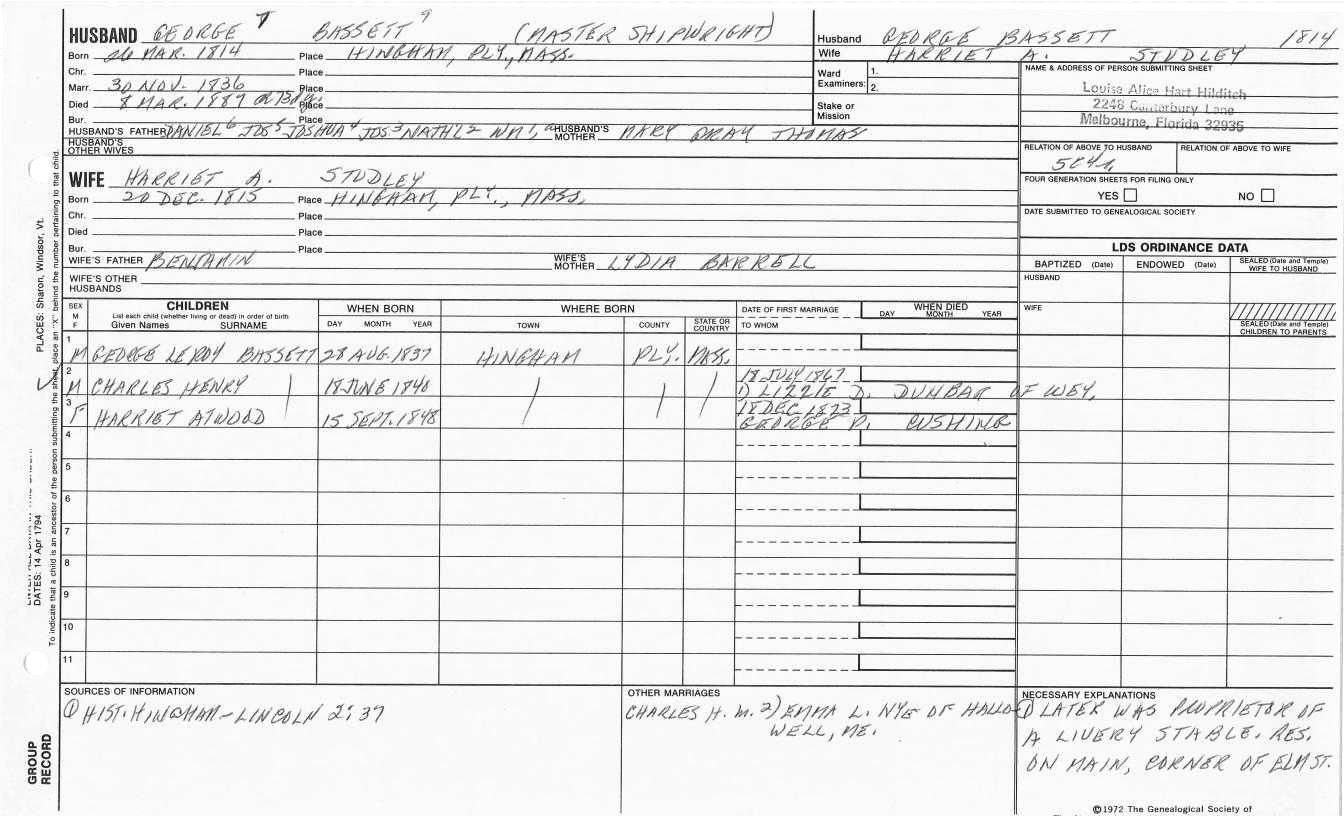 HUSBAND GEORGE 7 BASSETT 9 (MASTER SHIPWRIGHT)
Born 26 MAR. 1814 Place HINGHAM, PLY., MASS.
Chr. Place
Marr. 30 NOV. 1836 Place
Died 8 MAR. 1887 Place
Bur. Place
HUSBAND'S FATHER DANIEL 6 JOS 5 JOSHUA 4 JOS 3 NATH'L 2 WM 1, HUSBAND'S MOTHER MARY GRAY THOMAS
HUSBAND'S OTHER WIVES
WIFE HARRIET A. STUDLEY
Born 20 DEC. 1815 Place HINGHAM, PLY., MASS.
Chr. Place
Died Place
Bur. Place
WIFE'S FATHER BENJAMIN WIFE'S MOTHER LYDIA BARRELL
WIFE'S OTHER HUSBANDS
Husband GEORGE BASSETT 1814
Wife HARRIET A. STUDLEY
Ward Examiners: 1.
2.
Stake or Mission
NAME & ADDRESS OF PERSON SUBMITTING SHEET
Louise Alice Hart Hilditch
2248 Canterbury Lane
Melbourne, Florida 32935
RELATION OF ABOVE TO HUSBAND RELATION OF ABOVE TO WIFE
5C4R
FOUR GENERATION SHEETS FOR FILING ONLY
YES NO
DATE SUBMITTED TO GENEALOGICAL SOCIETY
LDS ORDINANCE DATA
BAPTIZED (Date) ENDOWED (Date) SEALED (Date and Temple) WIFE TO HUSBAND
HUSBAND
WIFE
SEALED (Date and Temple) CHILDREN TO PARENTS
SEX M F CHILDREN WHEN BORN WHERE BORN DATE OF FIRST MARRIAGE WHEN DIED
List each child (whether living or dead) in order of birth
Given Names SURNAME DAY MONTH YEAR TOWN COUNTY STATE OR COUNTRY TO WHOM DAY MONTH YEAR
1 M GEORGE LEROY BASSETT 28 AUG. 1837 HINGHAM PLY. MASS.
2 M CHARLES HENRY 18 JUNE 1840 18 JULY 1867
1) LIZZIE D. DUNBAR OF WEY.
3 F HARRIET ATWOOD 15 SEPT. 1848 18 DEC 1873
GEORGE P. CUSHING
4
5
6
7
8
9
10
11
SOURCES OF INFORMATION
① HIST. HINGHAM - LINCOLN 2:37
OTHER MARRIAGES
CHARLES H. M. 2) EMMA L. NYE OF HALLO-
WELL, ME.
NECESSARY EXPLANATIONS
① LATER WAS PROPRIETOR OF
A LIVERY STABLE. RES.
ON MAIN, CORNER OF ELM ST.
©1972 The Genealogical Society of
PLACES: Sharon, Windsor, Vt.
DATES: 14 Apr 1794
To indicate that a child is an ancestor of the person submitting the sheet, place an "X" behind the number pertaining to that child.
GROUP
RECORD